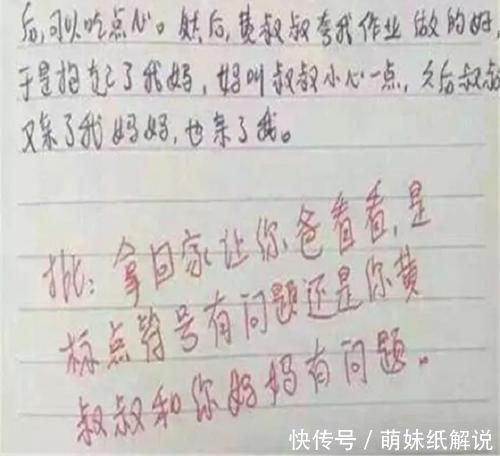 后,可以吃点心。然后,黄叔叔夸我作业做的好,
于是抱起了我妈,妈叫叔叔小心一点,之后叔叔
又亲了我妈妈,也亲了我。
批:拿回家让你爸看看,是
标点符号有问题还是你黄
叔叔和你妈妈有问题。
快传号/萌妹纸解说